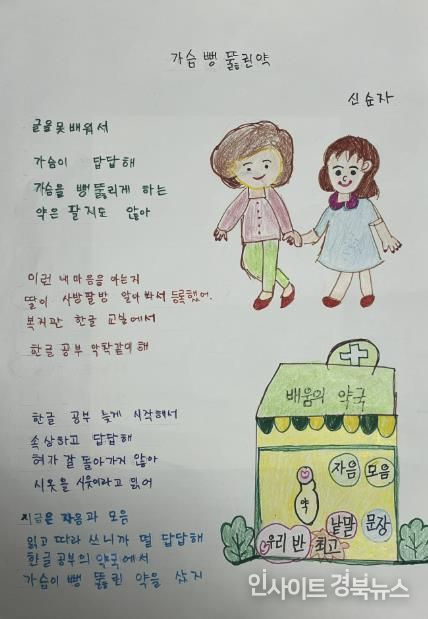 가슴 뻥 뚫린약
신순자
글을 못 배워서
가슴이 답답해
가슴을 뻥 뚫리게 하는
약은 팔지도 않아
이런 내 마음을 아는지
딸이 사방팔방 알아봐서 등록했어.
복지관 한글 교실에서
한글 공부 악착같이 해
한글 공부 늦게 시작해서
속상하고 답답해
혀가 잘 돌아가지 않아
시옷을 시읏이라고 읽어
지금은 자음과 모음
읽고 따라 쓰니까 덜 답답해
한글 공부의 약국에서
가슴이 뻥 뚫린 약을 샀지
배움의 약국
자음 모음
약
낱말 문장
우리 반 최고
인사이트 경북뉴스